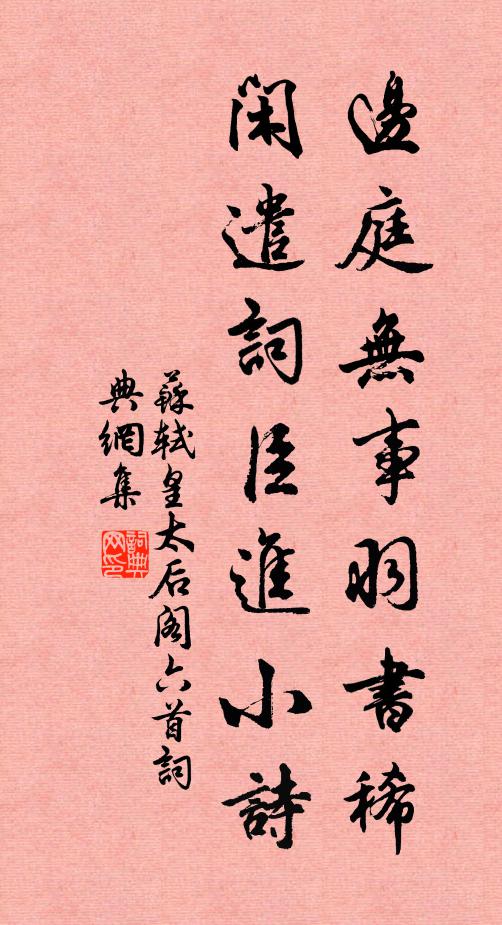 邊庭無事羽書稀
閑遣詞臣進小詩
蘇軾皇太后閣六首詞
典網集
詞典
网印